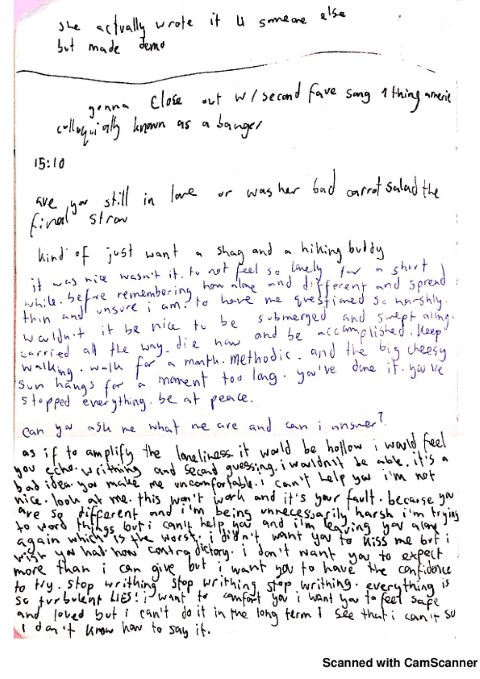 she actually wrote it 4 someone else
but made demo
gonna close out w/ second fave song 1 thing amerie
colloquially known as a banger
15:10
are you still in love or was her bad carrot salad the
final straw
kind of just want a shag and a hiking buddy
it was nice wasn't it. to not feel so lonely for a short
while. before remembering how alone and different and spread
thin and unsure i am. to have me questioned so harshly.
wouldn't it be nice to be submerged and swept along.
carried all the way. die now and be accomplished. keep
walking. walk for a month. methodic. and the big cheesy
sun hangs for a moment too long. you've done it. you've
stopped everything. be at peace.
can you ask me what we are and can i answer?
as if to amplify the loneliness it would be hollow i would feel
you echo. writhing and second guessing. i wouldn't be able. it's a
bad idea. you make me uncomfortable. i can't help you i'm not
nice. look at me. this won't work and it's your fault. because you
are so different and i'm being unnecessarily harsh i'm trying
to word things but i can't help you and i'm leaving you alone
again which is the worst. i didn't want you to kiss me but i
wish you had how contradictory. i don't want you to expect
more than i can give but i want you to have the confidence
to try. stop writhing stop writhing stop writhing. everything is
so turbulent LIES! i want to comfort you i want you to feel safe
and loved but i can't do it in the long term i see that i can't so
i don't know how to say it.
Scanned with CamScanner